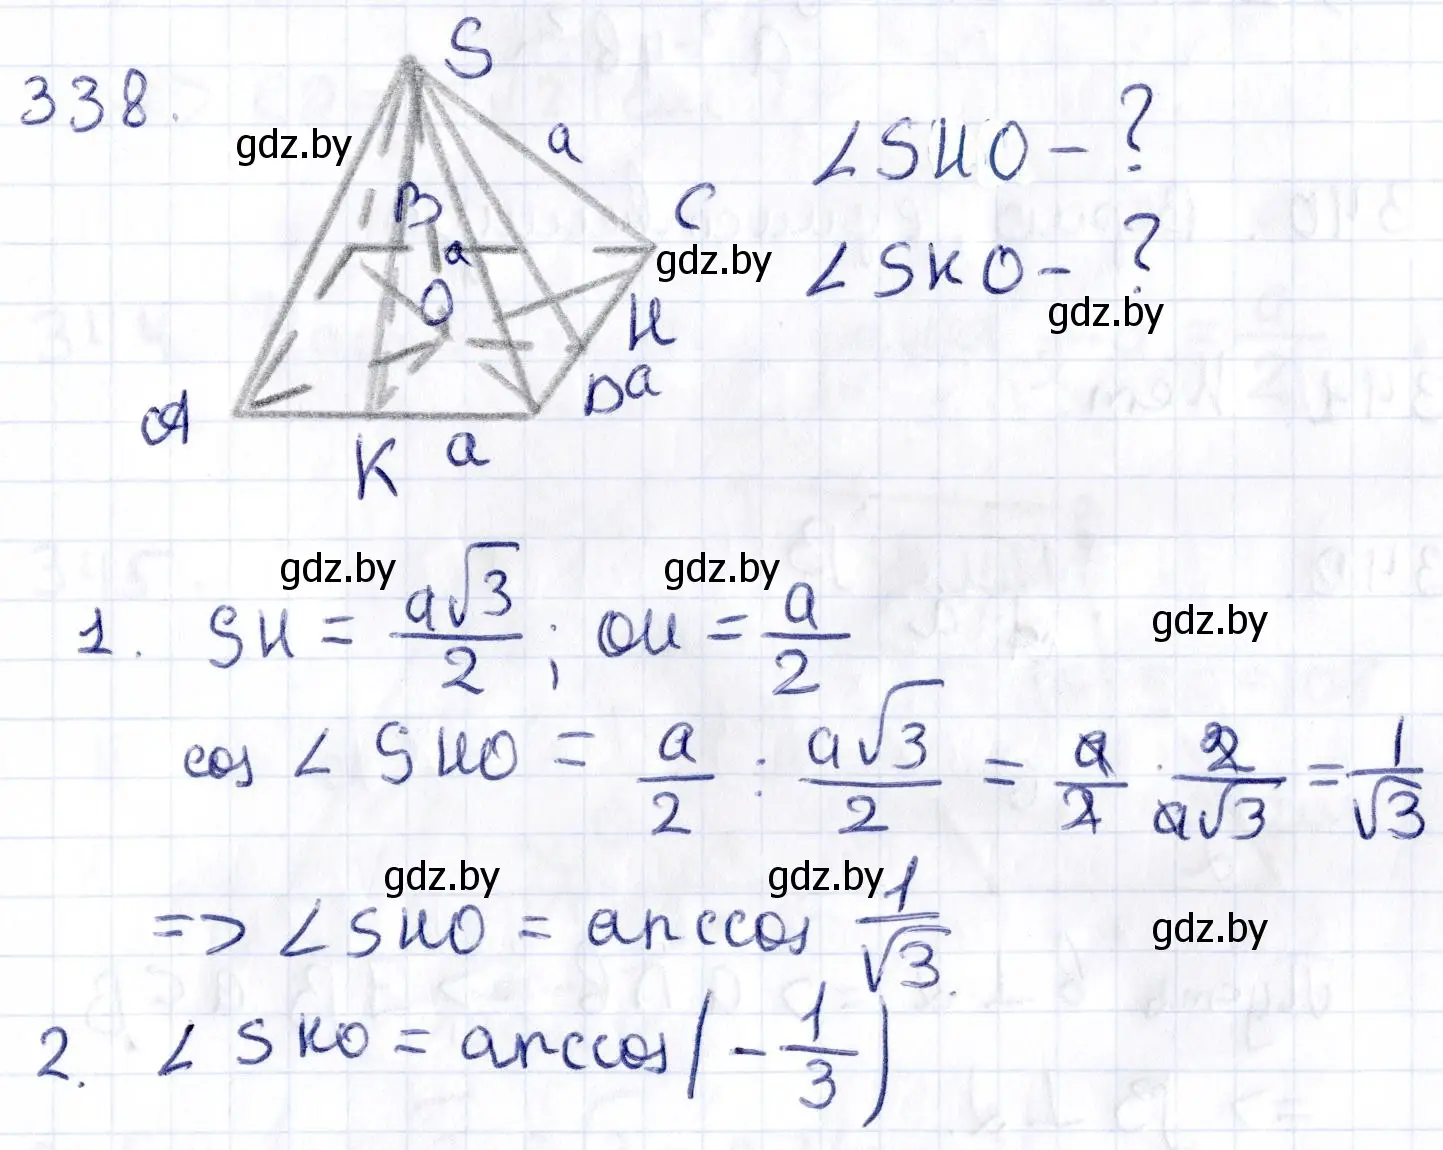 338.
S
gdz.by
a
∠SHO - ?
B
C
a
gdz.by
∠SKO - ?
O
H
gdz.by
A
D a
K a
gdz.by gdz.by
1. SH = a√3/2 ; OH = a/2
gdz.by
cos ∠ SHO = a/2 : a√3/2 = a/2 · 2/a√3 = 1/√3
gdz.by gdz.by
=> ∠SHO = arccos 1/√3.
gdz.by
2. ∠SKO = arccos(-1/3)